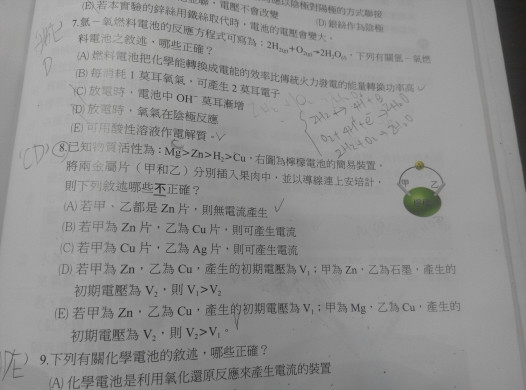 (E) 若本實驗的鋅絲用鐵絲取代時,電池的電壓會變大。
(D) 銀絲作為陰極
7. 氫-氧燃料電池的反應方程式可寫為:2H₂(g)+O₂(g)→2H₂O(l),下列有關氫-氧燃
料電池之敘述,哪些正確?
(A) 燃料電池把化學能轉換成電能的效率比傳統火力發電的能量轉換功率高
(B) 每消耗 1 莫耳氧氣,可產生 2 莫耳電子
(C) 放電時,電池中 OH⁻ 莫耳漸增
(D) 放電時,氧氣在陰極反應
(E) 可用酸性溶液作電解質。
8. 已知物質活性為:Mg>Zn>H₂>Cu,右圖為檸檬電池的簡易裝置,
將兩金屬片(甲和乙)分別插入果肉中,並以導線連上安培計,
則下列敘述哪些不正確?
甲 乙
(A) 若甲、乙都是 Zn 片,則無電流產生
(B) 若甲為 Zn 片,乙為 Cu 片,則可產生電流
(C) 若甲為 Cu 片,乙為 Ag 片,則可產生電流
(D) 若甲為 Zn,乙為 Cu,產生的初期電壓為 V₁;甲為 Zn,乙為石墨,產生的
初期電壓為 V₂,則 V₁>V₂
(E) 若甲為 Zn,乙為 Cu,產生的初期電壓為 V₁;甲為 Mg,乙為 Cu,產生的
初期電壓為 V₂,則 V₂>V₁。
9. 下列有關化學電池的敘述,哪些正確?
(A) 化學電池是利用氧化還原反應來產生電流的裝置